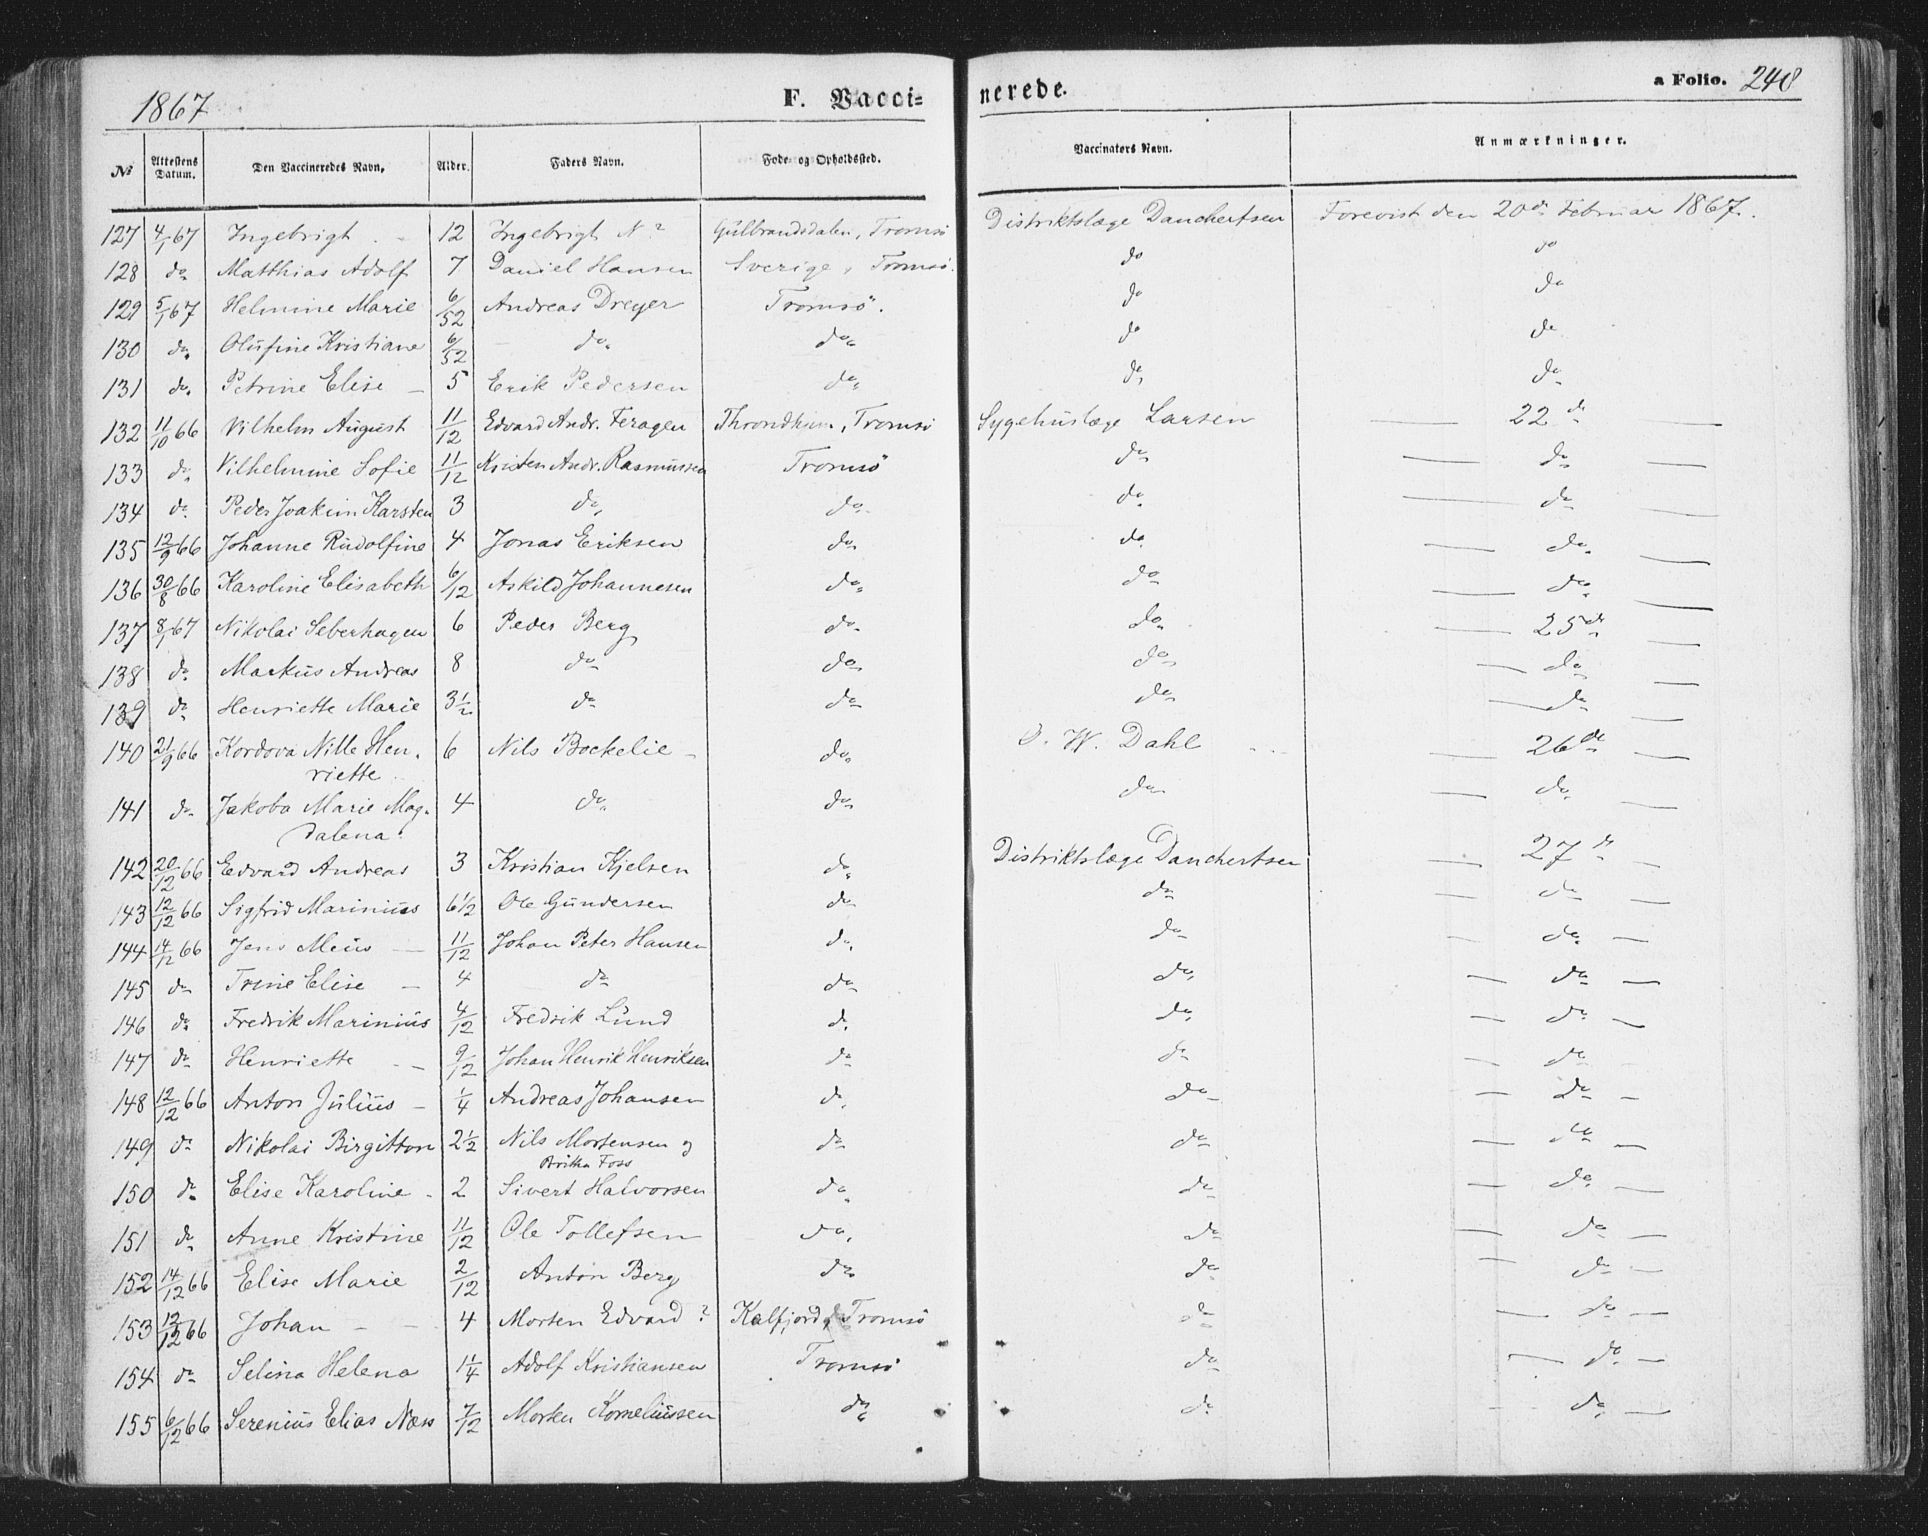 1867 F. Vacci= nerede. a Folio. 248
No Attestens Datum. Den Vaccineredes Navn. Alder. Faders Navn. Føde- og Opholdssted. Vaccinators Navn. Anmærkninger.
127 4/1 67 Ingebrigt - 12 Ingebrigt N? Gulbrandsdalen, Tromsø Distriktslæge Danchertsen Forevist den 20de Februar 1867.
128 do Matthias Adolf 7 Daniel Hansen Sverige, Tromsø. do do
129 5/1 67 Helmine Marie 6/52 Andreas Dreyer Tromsø. do do
130 do. Olufine Kristiane 6/52 do. do. do do
131 do. Petrine Elise - 5 Erik Pedersen do. do. do.
132 11/10 66 Vilhelm August 11/12 Edvard Andr. Feragen Throndhjem, Tromsø Sygehuslæge Larsen — 22 de —
133 do. Vilhelmine Sofie 11/12 Kristen Andr. Rasmussen Tromsø do. — do. —
134 do. Peder Joakim Karsten 3 do. do. do. — do —
135 12/9 66 Johanne Rudolfine 4 Jonas Eriksen do. do. — do. —
136 30/8 66 Karoline Elisabeth 6/12 Askild Johannesen do. do. — do. —
137 8/1 67 Nikolai Seberhagen 6 Peder Berg do. do. — 25de —
138 do. Markus Andreas 8 do. do. do. — do. —
139 do. Henriette Marie 3½ do. do. do. — do. —
140 21/9 66 Kordova Nille Hen- 6 Nils Bockelie - do. O. W. Dahl — 26de —
riette
141 do. Jakoba Marie Mag- 4 do. do. do. — do. —
dalena.
142 20/12 66 Edvard Andreas 3 Kristian Kjelsen do. Distriktslæge Danchertsen — 27 de —
143 12/12 66 Sigfrid Marinius 6½ Ole Gundersen do. do. — do. —
144 14/12 66 Jens Meus — 11/12 Johan Peter Hansen do. do. — do. —
145 do. Trine Elise — 4 do. do. do. — do. —
146 do. Fredrik Marinius 4/12 Fredrik Lund do. do. — do. —
147 do. Henriette - - 9/12 Johan Henrik Henriksen do. do. — do.
148 12/12 66 Anton Julius - ¼ Andreas Johansen do. do. — do. —
149 do. Nikolai Birgitton 2½ Nils Mortensen og do. do. — do. —
Britha Foss
150 do. Elise Karoline - 2 Sivert Halvorsen do. do. — do. —
151 do. Anne Kristine 11/12 Ole Tollefsen do. do. — do. —
152 14/12 66 Elise Marie 2/12 Anton Berg do. do. — do. —
153 12/12 66 Johan - - 4 Morten Edvard ? Kalfjord, Tromsø do. — do. —
154 do. Selina Helena 1¼ Adolf Kristiansen Tromsø do. — do. —
155 6/12 66 Serenius Elias Næss 7/12 Morten Korneliussen do. do. do. —